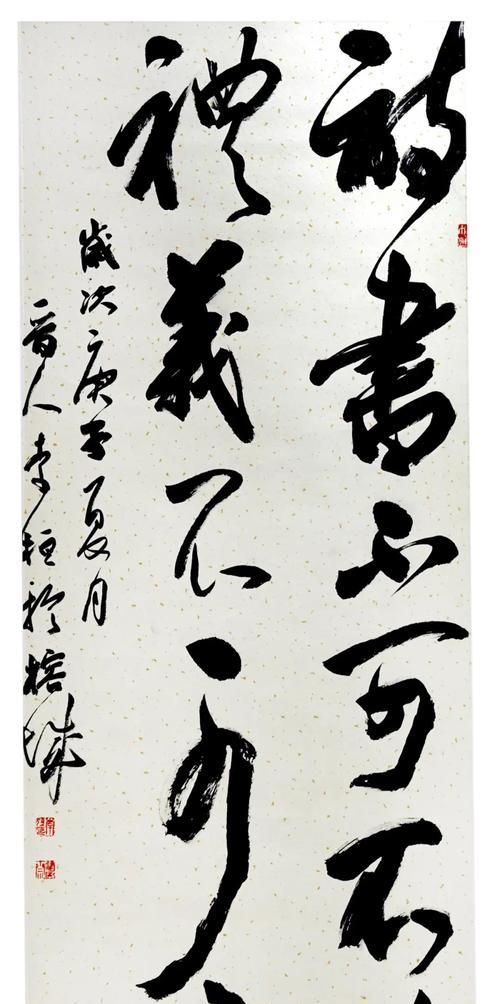 詩書不可不
禮義不可
歲次庚子夏月
晋人李恒於榕城